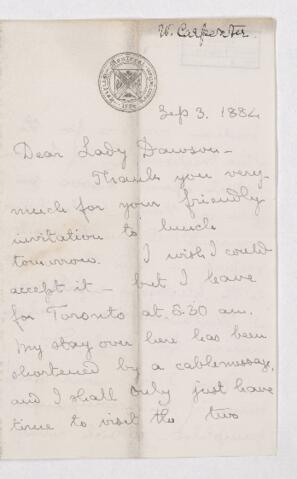 W. Carpenter.
Montreal
1884
Sep 3. 1884
Dear Lady Dawson –
Thank you very
much for your friendly
invitation to lunch
tomorrow. I wish I could
accept it – but I leave
for Toronto at 8.30 am.
My stay over here has been
shortened by a cablemessage,
and I shall only just have
time to visit the two